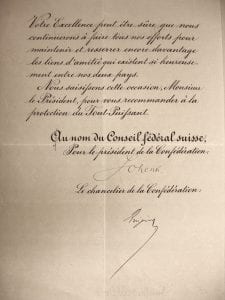 Votre Excellence peut être sûre, que nous
continuerons à faire tous nos efforts pour
maintenir et resserrer encore davantage
les liens d'amitié qui existent si heureuse-
ment entre nos deux pays.
Nous saisissons cette occasion, Monsieur
le Président, pour vous recommander à la
protection du Tout-Puissant.
Au nom du Conseil fédéral suisse,
Pour le président de la Confédération:
Schenk
Le chancelier de la Confédération: